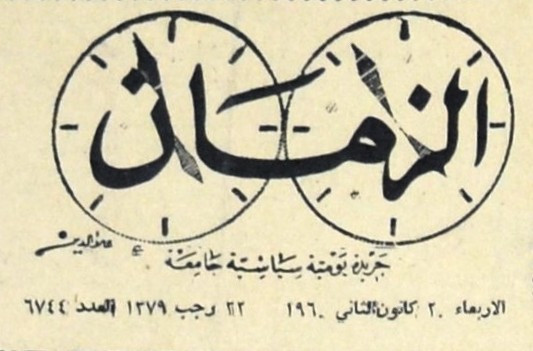 الزمان
علاء الدين
جريدة يومية سياسية جامعة
الاربعاء ٢٠ كانون الثاني ١٩٦٠ ٢٢ رجب ١٣٧٩ العدد ٦٧٤٤